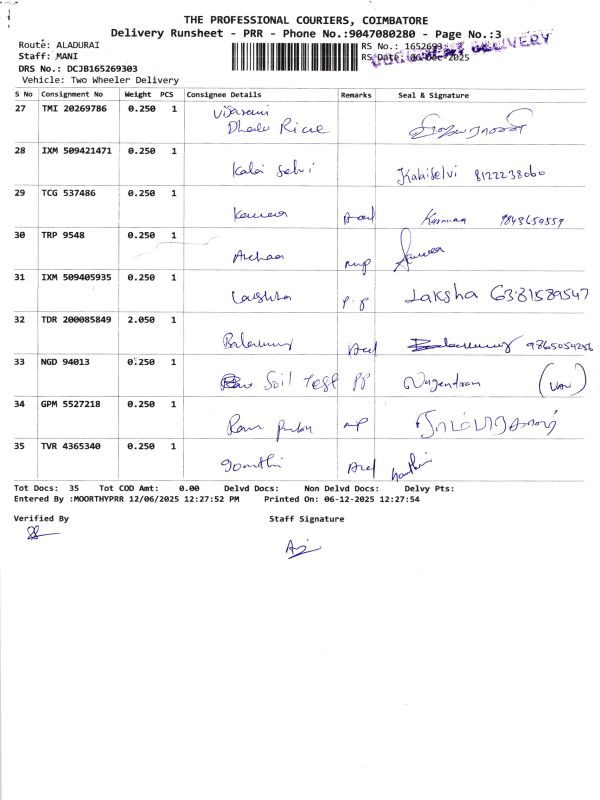 THE PROFESSIONAL COURIERS, COIMBATORE
Delivery Runsheet - PRR - Phone No.:9047080280 - Page No.:3
Route: ALADURAI
RS No.: 1652693
Staff: MANI
RS Date: 06-Dec-2025
DELIVERY
DRS No.: DCJB165269303
Vehicle: Two Wheeler Delivery
S No Consignment No Weight PCS Consignee Details Remarks Seal & Signature
27 TMI 20269786 0.250 1
28 IXM 509421471 0.250 1 Kalai Selvi Kalaiselvi 8122238060
29 TCG 537486 0.250 1 9843659559
30 TRP 9548 0.250 1
31 IXM 509405935 0.250 1 Laksha 6381589547
32 TDR 200085849 2.050 1 9865054256
33 NGD 94013 0.250 1 Soil Test PP Nagendran (VAN)
34 GPM 5527218 0.250 1
35 TVR 4365340 0.250 1 Gomthi
Tot Docs: 35 Tot COD Amt: 0.00 Delvd Docs: Non Delvd Docs: Delvy Pts:
Entered By :MOORTHYPRR 12/06/2025 12:27:52 PM Printed On: 06-12-2025 12:27:54
Verified By Staff Signature